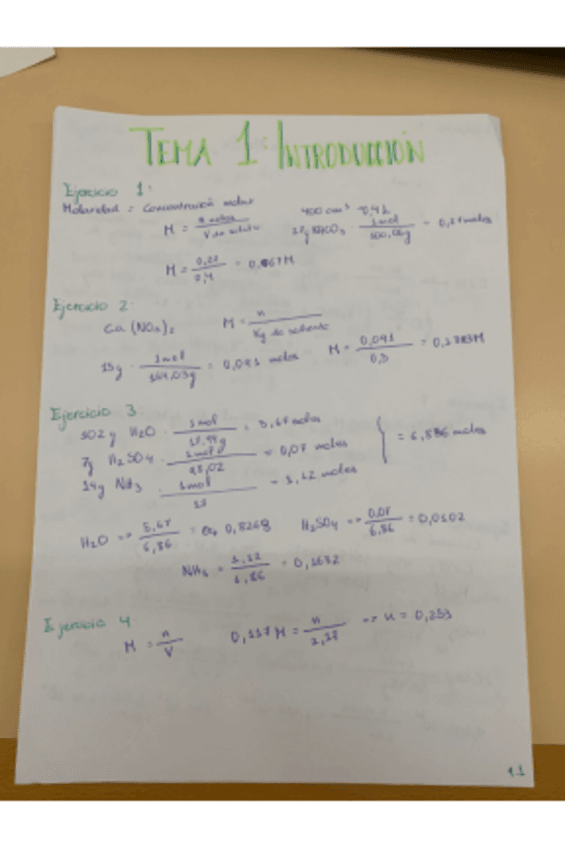 TEMA 1: INTRODUCCIÓN
Ejercicio 1:
Molaridad = Concentración molar
M = n moles / V de soluto
400 cm³ 0,4 L
· 1 mol / = 0,27 moles
M = / 0,4 = M
Ejercicio 2:
Ca (NO₃)₂ M = n / Kg de solvente
15g · 1 mol / 164,03g = 0,091 moles M = 0,091 / 0,5 =
Ejercicio 3
102 g H₂O · 1 mol / = 5,67 moles
7g H₂SO₄ · 1 mol / 98,02 = 0,07 moles = 6,886 moles
19g NH₃ · 1 mol / 17 = 1,12 moles
H₂O => 5,67 / 6,86 = 0,8268 H₂SO₄ => 0,07 / 6,86 = 0,0102
NH₃ = 1,12 / 6,86 = 0,1632
Ejercicio 4:
M = n / V 0,117 M = n / => n =
1.1